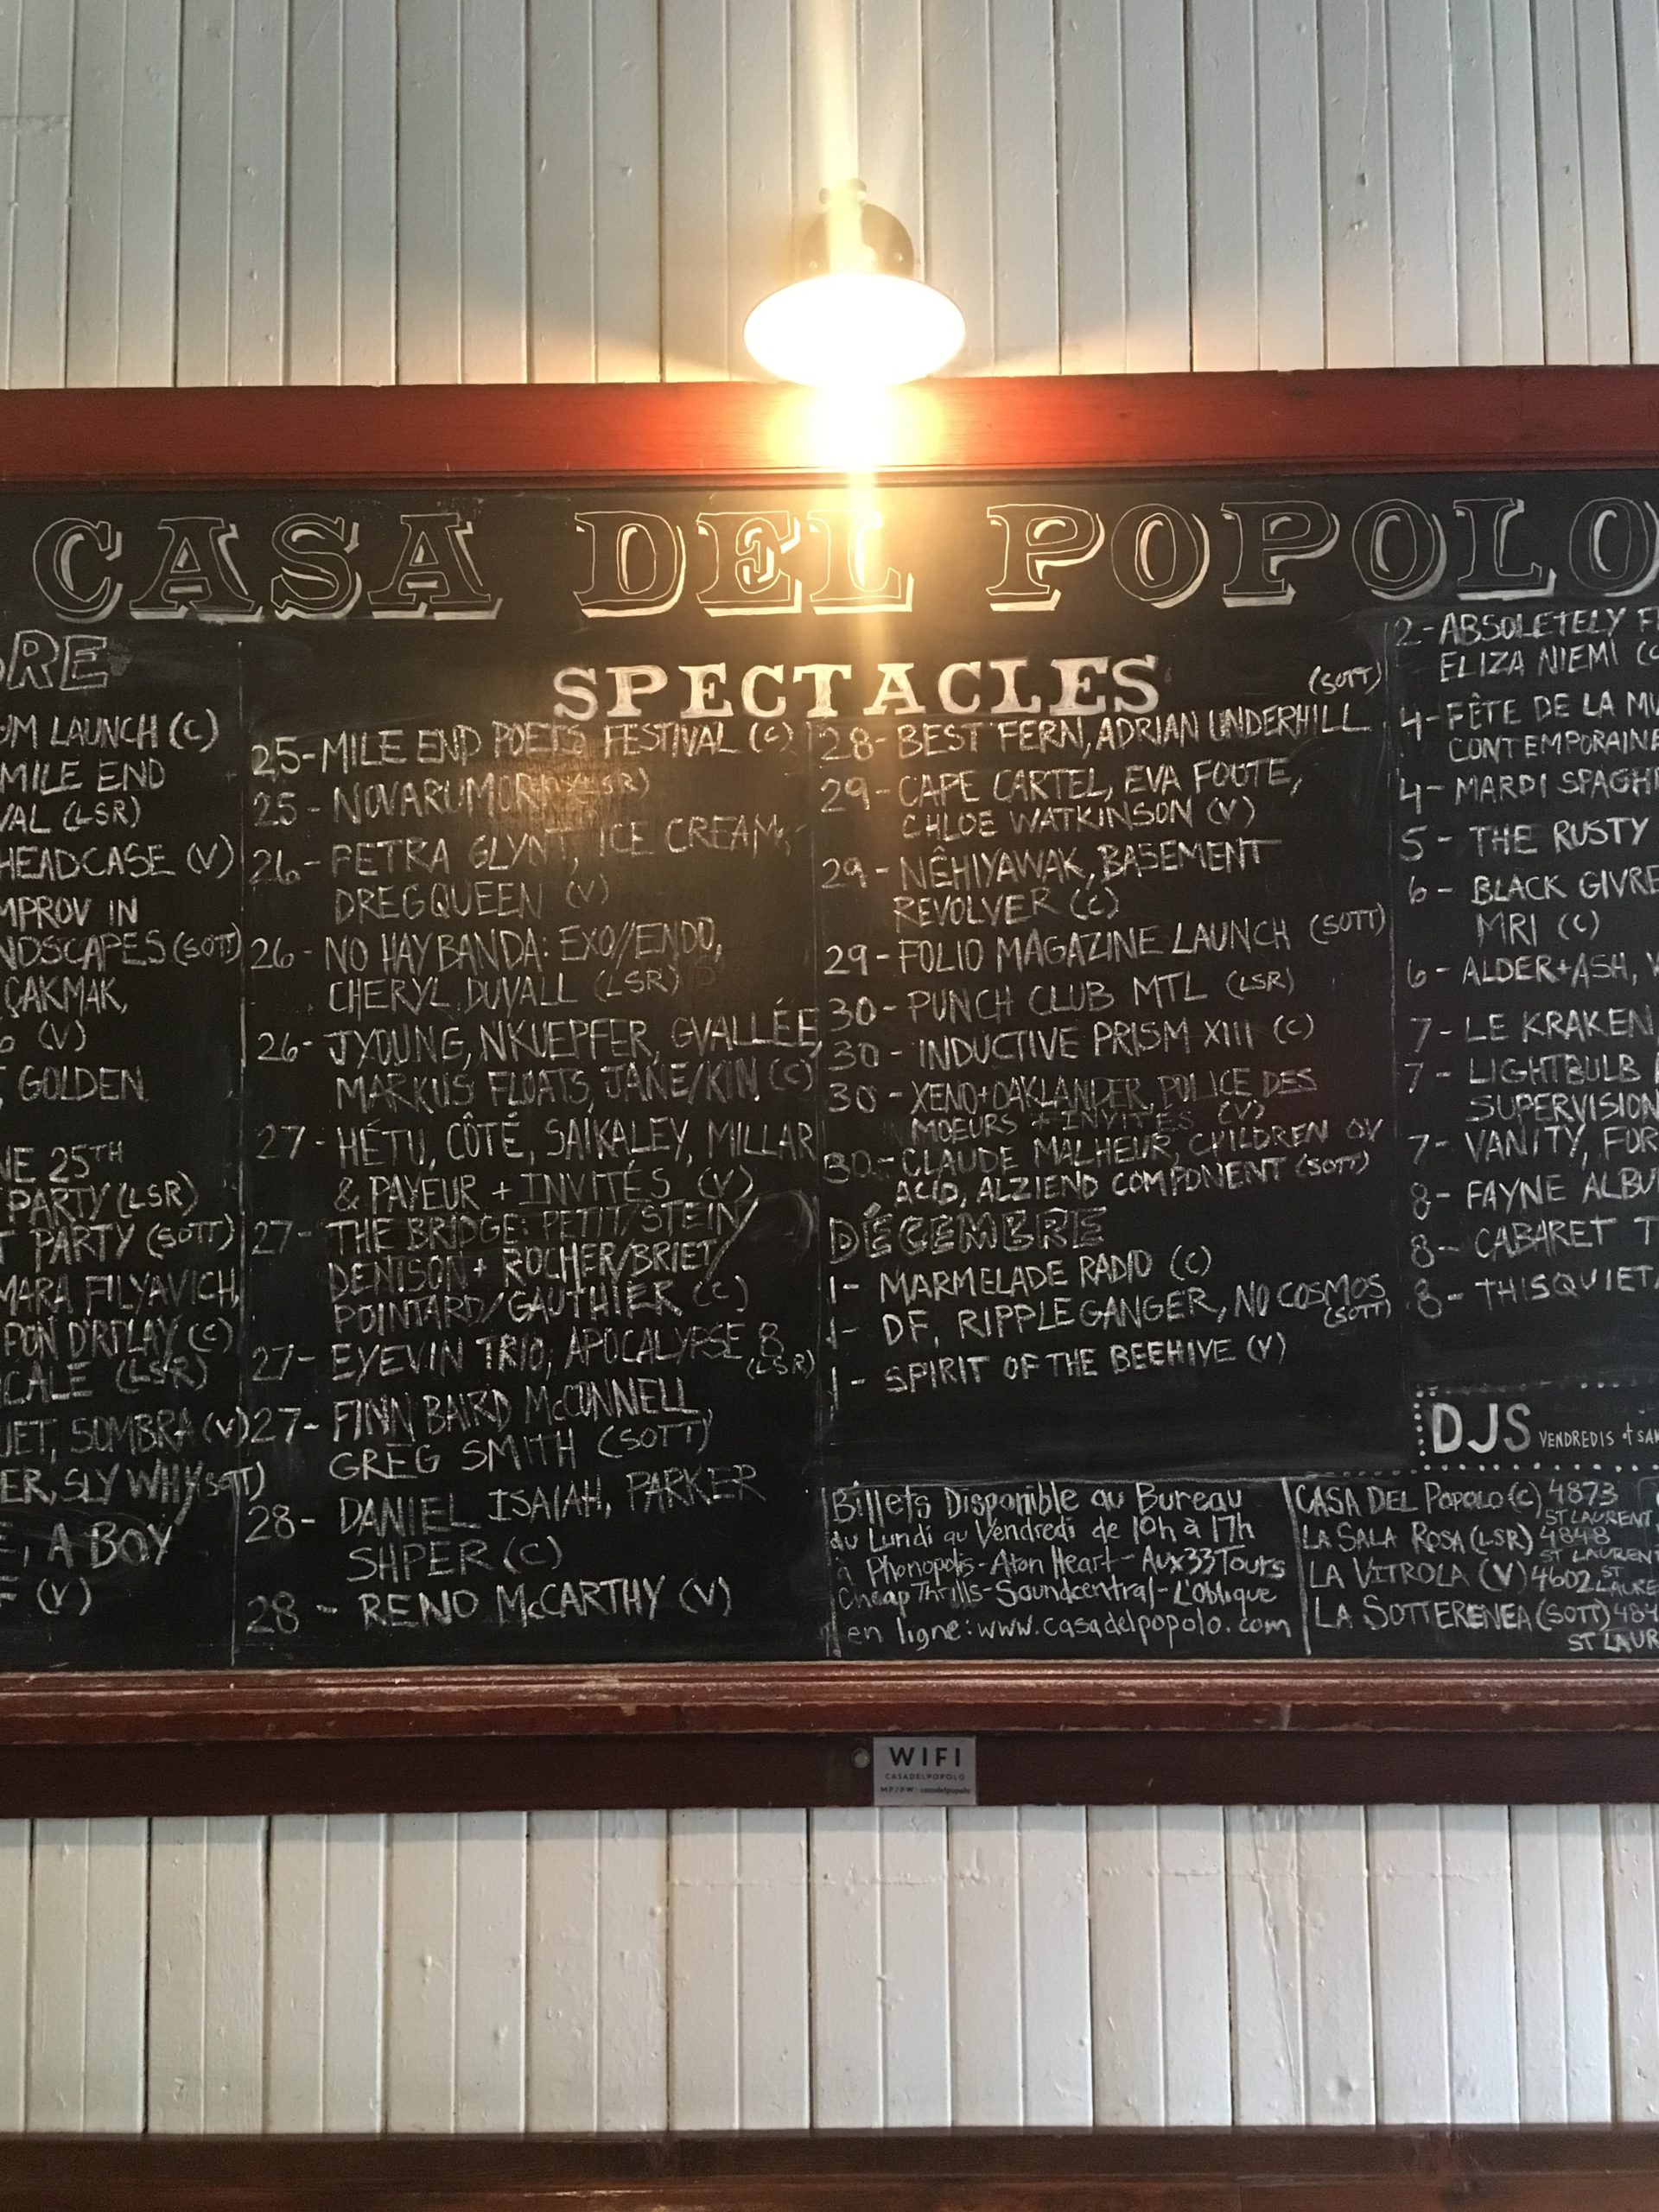 CASA DEL POPOLO
SPECTACLES
UM LAUNCH (C)
MILE END
VAL (LSR)
HEADCASE (V)
MPROV IN
NDSCAPES (SOTT)
ÇAKMAK,
(V)
GOLDEN
NE 25TH
PARTY (LSR)
T PARTY (SOTT)
MARA FILYAVICH,
PON D'RPLAY (C)
CALE (LSR)
UET, SOMBRA (V)
ER, SLY WHY (SOTT)
E, A BOY
E (V)
25-MILE END POETS FESTIVAL (C)
25 - NOVARUMORI (LSR)
26 - PETRA GLYNT, ICE CREAM,
DREGQUEEN (V)
26 - NO HAY BANDA: EXO//ENDO,
CHERYL DUVALL (LSR)
26 - JYOUNG, NKUEPFER, GVALLÉE,
MARKUS FLOATS, JANE/KIN (C)
27 - HÉTU, CÔTÉ, SAIKALEY, MILLAR
& PAYEUR + INVITÉS (V)
27 - THE BRIDGE: PETIT/STEIN/
DENISON + ROCHER/BRIET/
POINTARD/GAUTHIER (C)
27 - EYEVIN TRIO, APOCALYPSE 8
(LSR)
27 - FINN BAIRD McCONNELL,
GREG SMITH (SOTT)
28 - DANIEL ISAIAH, PARKER
SHPER (C)
28 - RENO McCARTHY (V)
(SOTT)
28 - BEST FERN, ADRIAN UNDERHILL
29 - CAPE CARTEL, EVA FOOTE,
CHLOE WATKINSON (V)
29 - NÊHIYAWAK, BASEMENT
REVOLVER (C)
29 - FOLIO MAGAZINE LAUNCH (SOTT)
30 - PUNCH CLUB MTL (LSR)
30 - INDUCTIVE PRISM XIII (C)
30 - XENO+OAKLANDER, POLICE DES
MOEURS + INVITÉS (V)
30 - CLAUDE MALHEUR, CHILDREN OV
ACID, ALZIEND COMPONENT (SOTT)
DÉCEMBRE
1 - MARMELADE RADIO (C)
1 - DF, RIPPLEGANGER, NO COSMOS
(SOTT)
1 - SPIRIT OF THE BEEHIVE (V)
Billets Disponible au Bureau
du Lundi au Vendredi de 10h à 17h
à Phonopolis - Atom Heart - Aux33Tours
Cheap Thrills - Soundcentral - L'Oblique
en ligne: www.casadelpopolo.com
2 - ABSOLETELY F
ELIZA NIEMI (C
4 - FÊTE DE LA MU
CONTEMPORAINE
4 - MARDI SPAGH
5 - THE RUSTY
6 - BLACK GIVRE
MRI (C)
6 - ALDER+ASH,
7 - LE KRAKEN
7 - LIGHTBULB
SUPERVISION
7 - VANITY, FOR
8 - FAYNE ALBU
8 - CABARET T
8 - THISQUIET
DJS VENDREDIS + SAM
CASA DEL POPOLO (C) 4873
ST LAURENT
LA SALA ROSA (LSR) 4848
ST LAURENT
LA VITROLA (V) 4602 ST
LAURE
LA SOTTERENEA (SOTT) 484
ST LAUR
WIFI
CASADELPOPOLO
MP/PW: casadelpopolo